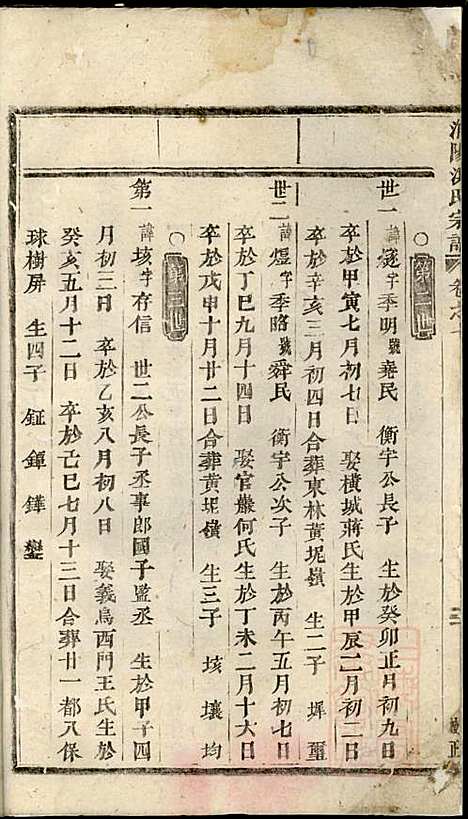 氏宗譜 卷之一
第二世
世一 諱 字季明號堯民 衡宇公長子 生於癸卯正月初九日
卒於甲寅七月初七日 娶橫城蔣氏生於甲辰二月初二日
卒於辛亥三月初四日合葬東林黃坭嶺 生二子 墀 璽
世二 諱煜字季略號舜民 衡宇公次子 生於丙午五月初七日
卒於丁巳九月十四日 娶官巖何氏生於丁未二月十六日
卒於戊申十月廿二日合葬黃坭嶺 生三子 垓 壤 均
第三世
第一 諱垓字存信 世二公長子丞事郎國子監丞 生於甲子四
月初三日 卒於乙亥八月初八日 娶義烏西門王氏生於
癸亥五月十二日 卒於己巳七月十三日合葬廿一都八保
球樹屏 生四子 鉦 鐔 鏵 鑾